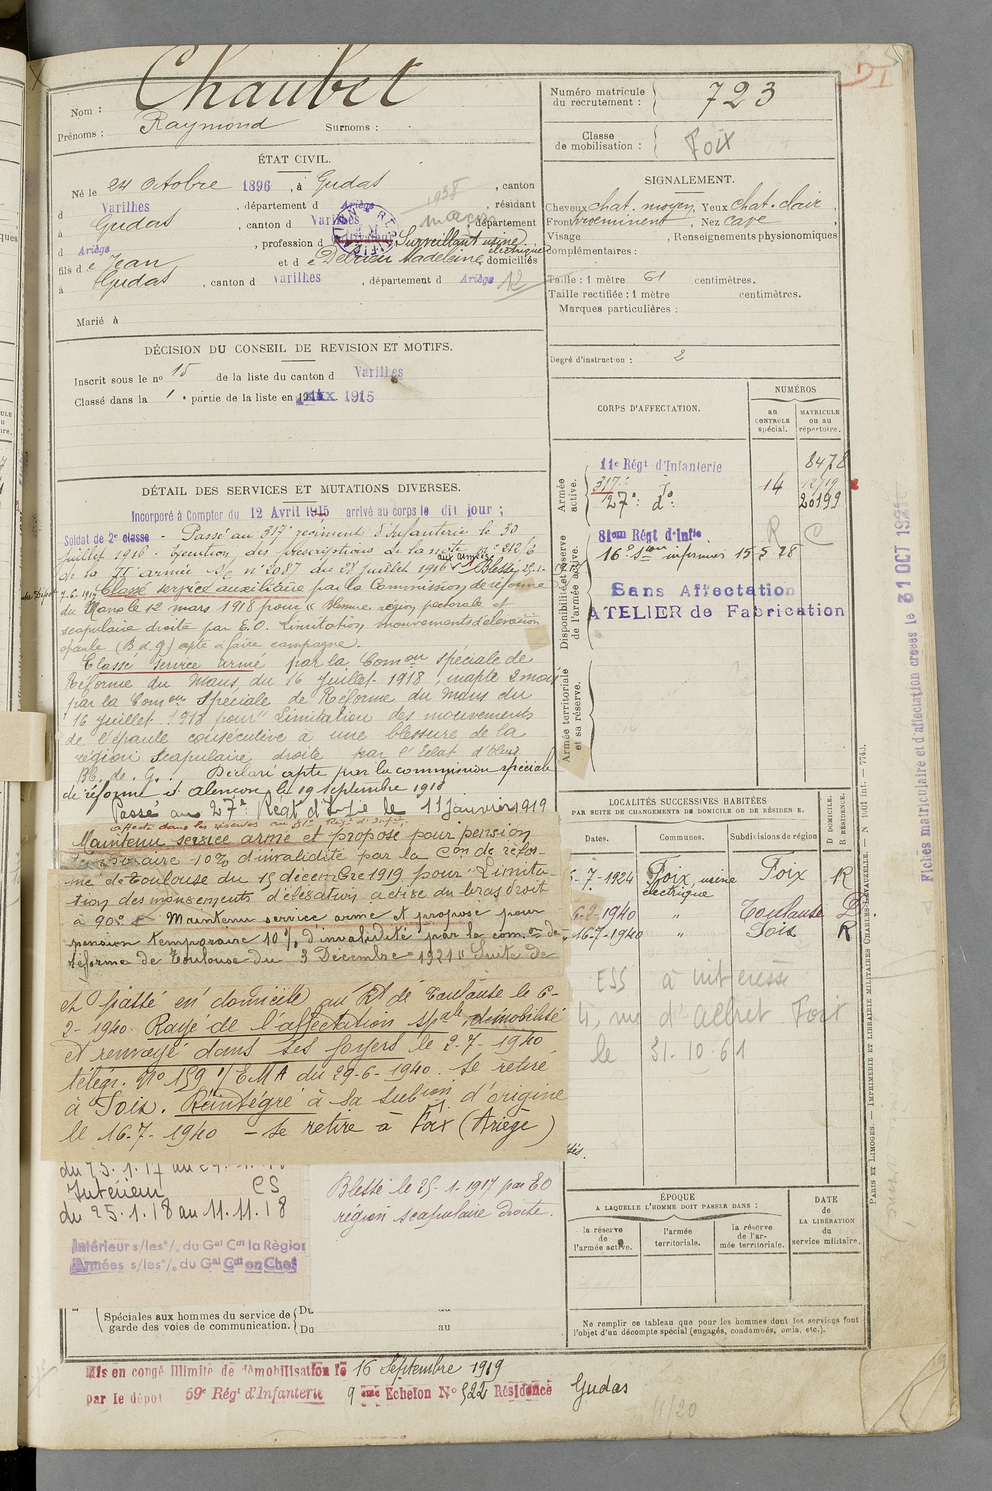 Nom : Chaubet
Prénoms : Raymond Surnoms :
Numéro matricule du recrutement : 723
Classe de mobilisation : Foix
ÉTAT CIVIL.
Né le 24 Octobre 1896, à Gudas, canton
d Varilhes, département d Ariège, résidant
à Gudas, canton d Varilhes, département
d Ariège, profession d Surveillant usine électrique
1938 maçon
fils de Jean et de Debrieu Madeleine, domiciliés
à Gudas, canton d Varilhes, département d Ariège
12
Marié à
SIGNALEMENT.
Cheveux chat. moyen, Yeux chat. clair,
Front proeminent, Nez cave,
Visage , Renseignements physionomiques
complémentaires :
Taille : 1 mètre 61 centimètres.
Taille rectifiée : 1 mètre centimètres.
Marques particulières :
Degré d'instruction : 2
DÉCISION DU CONSEIL DE REVISION ET MOTIFS.
Inscrit sous le no 15 de la liste du canton d Varilhes
Classé dans la 1e partie de la liste en 1915
DÉTAIL DES SERVICES ET MUTATIONS DIVERSES.
Incorporé à Compter du 12 Avril 1915 arrivé au corps le dit jour ;
Soldat de 2e classe - Passé au 317e regiment d'infanterie le 30
juillet 1916 - Execution des prescriptions de la note No 212/6
de la IIe armée S/c no 2087 du 28 juillet 1916 aux armées Blessé 25-1-
7-6-1917 Classé service auxiliaire par la Commission de réforme
du Mans le 12 mars 1918 pour « Blessure région pectorale et
scapulaire droite par E.O. Limitation mouvements d'élévation
épaule (B d g) apte à faire campagne.
Classé service armé par la Comon spéciale de
Réforme du Mans, du 16 juillet 1918, inapte 2 mois
par la Comon Spéciale de Réforme du Mans du
16 juillet 1918 pour " Limitation des mouvements
de l'épaule consécutive à une blessure de la
région scapulaire droite par l'Eclat d'obus
Bl. de G. Déclaré apte par la commission spéciale
de réforme d'Alençon le 19 septembre 1918
Passé au 27e Régt d'Infie le 11 janvier 1919
affecté dans les réserves au 81e Régt d'Infie
Maintenu service armé et proposé pour pension
temporaire 10% d'invalidité par la Con de réfor-
me de Toulouse du 15 décembre 1919 pour "Limita-
tion des mouvements d'élévation active du bras droit
à 90° Maintenu service armé et proposé pour
pension temporaire 10% d'invalidité par la comon de
réforme de Toulouse du 3 Decembre 1921 " Suite de
et passé en domicile au Rt de Toulouse le 6-
2-1940. Rayé de l'affectation spale, démobilisé
et renvoyé dans ses foyers le 2-7-1940
télégr. No 159 1/EMA du 29-6-1940. Se retire
à Foix. Réintégré à sa subion d'origine
le 16-7-1940 - Se retire à Foix (Ariège)
Intérieur CS
du 25.1.18 au 11.11.18
Intérieur s/les o/. du Gal Cdt la Région
Armées s/les o/. du Gal Cdt en Chef
Blessé le 25-1-1917 par EO
région scapulaire droite.
Spéciales aux hommes du service de garde des voies de communication. Du au
Du au
CORPS D'AFFECTATION.
NUMÉROS
au CONTROLE spécial.
MATRICULE ou au répertoire.
Armée active.
11e Régt d'Infanterie 8478
317e 14 12719
127e do 20199
Disponibilité et réserve de l'armée active.
81em Régt d'Infie R C
16e Son infirmiers 15-5-28
Sans Affectation
ATELIER de Fabrication
Armée territoriale et sa réserve.
LOCALITÉS SUCCESSIVES HABITÉES
PAR SUITE DE CHANGEMENTS DE DOMICILE OU DE RÉSIDENCE.
D DOMICILE. R RÉSIDENCE.
Dates. Communes. Subdivisions de région
5-7-1924 Foix, usine électrique Foix R
6-2-1940 " Toulouse D
16-7-1940 " Foix R
ESS à intéressé
4, rue d'Albret Foix
le 31-10-61
ÉPOQUE
A LAQUELLE L'HOMME DOIT PASSER DANS :
la réserve de l'armée active.
l'armée territoriale.
la réserve de l'armée territoriale.
DATE DE LA LIBÉRATION du service militaire.
Ne remplir ce tableau que pour les hommes dont les services font
l'objet d'un décompte spécial (engagés, condamnés, omis, etc.).
Mis en congé illimité de démobilisation le 16 Septembre 1919
par le dépot 59e Régt d'Infanterie 9 eme Echelon No 522 Résidence Gudas
Fiches matriculaire et d'affectation créées le 31 OCT 1924
PARIS ET LIMOGES. — IMPRIMERIE ET LIBRAIRIE MILITAIRES CHARLES-LAVAUZELLE. — N° 1001 int. — 7740.